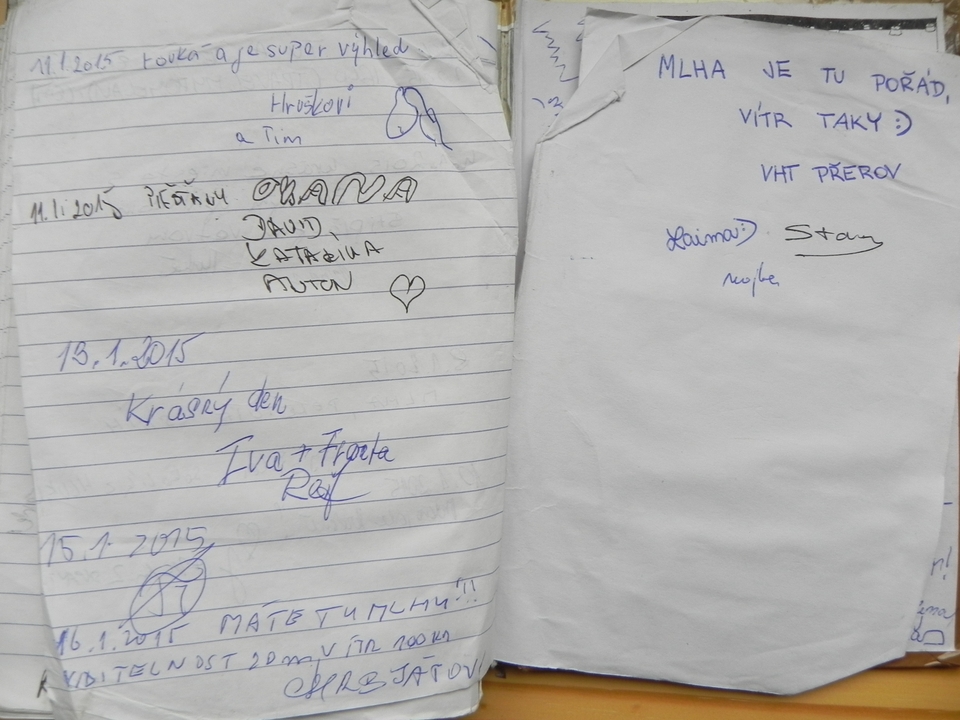 11.1.2015 Fouká a je super výhled
Hruškovi
a Tim
11.1.2015 PIEŠŤANY OXANA
DAVID,
KATARINA
ANTON
13.1.2015
Krásný den
Iva + Franta
15.1.2015
16.1.2015 MÁTE TU MLHU!!!
VIDITELNOST 20 m, VÍTR 100 km
MLHA JE TU POŘÁD,
VÍTR TAKY :)
VHT PŘEROV
Laima :) Stan